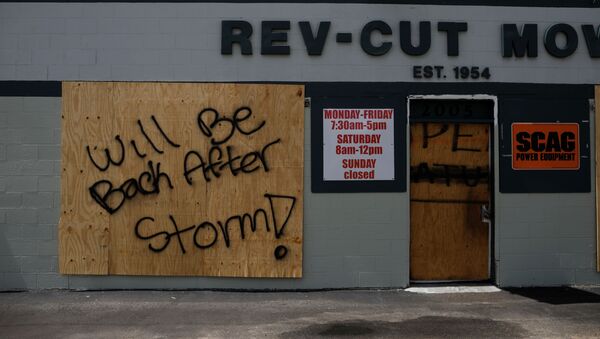 REV-CUT MOW
EST. 1954
Will Be
Back After
Storm!
MONDAY-FRIDAY
7:30am-5pm
SATURDAY
8am-12pm
SUNDAY
closed
2005
SCAG
POWER EQUIPMENT